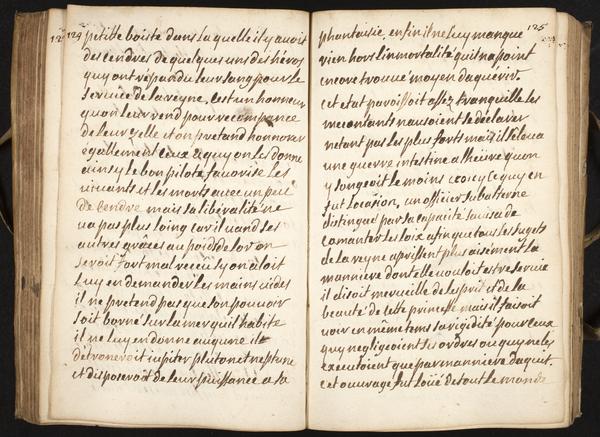 124
petitte boiste dans laquelle il y auoit
des cendres de quelques uns des héros
quy ont respandu leur sang pour le
seruice de la reyne, c'est un honneur
quon leur rend pour recompance
de leur zelle et on pretand honnorer
égallement ceux a quy on les donne
ainsy le bon pilote fauorise les
viuants et les morts auec un peu
de cendre mais sa libéralité ne
va pas plus loing car il uand ses
autres graces au poid de lor on
seroit fort mal receu sy on aloit
luy en demander les mains uides
il ne pretend pas que son pouuoir
soit borné sur la mer quil habite
il ne luy en donne aucune il
detroneroit iupiter pluton et neptune
et disposeroit de leur puissance a sa
125
phantaisie, enfin il ne luy manque
rien hors l'immortalité quil na point
encore trouué moyen daquérir.
cet etat paroissoit assez tranquille les
mecontants nausoient se déclarer
netant pas les plus forts mais il s'éleua
une guerre intestine a lheure quon
y songeoit le moins voicy ce quy en
fut locasion, un officier subalterne
distingué par sa capacité sauisa de
comanter les loix afin que tous les sujets
de la reyne aprissent plus aisément la
manniere dont elle vouloit estre seruie
il disoit merueille de lesprit et de la
beauté de cette princesse mais il faisoit
uoir en même tems la rigidité pour ceux
quy negligeoient ses ordres ou quy ne les
executoient que par manniere daquit.
cet ouurage fut loüé de tout le monde